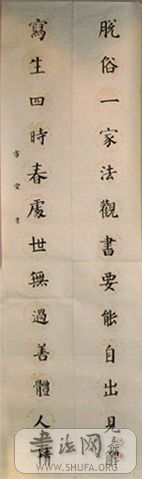 脫俗一家法觀書要能自出見解
寫生四時春處世無過善體人情
書法网
WWW.SHUFA.ORG